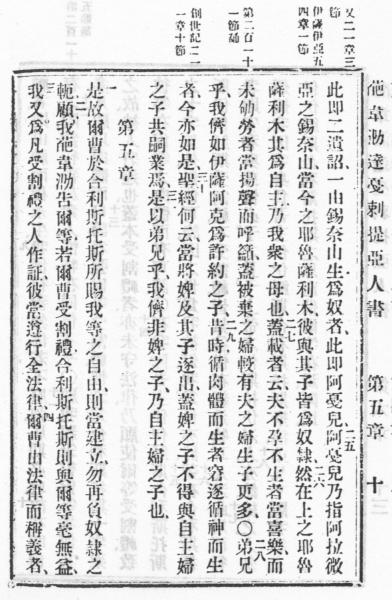 葩韋泐達戛剌提亞人書　第五章　十
又二一章三
節
伊薩伊亞五
四章一節
第二百一十
一節
創世記二
一章十節
此即二遺詔一由錫奈山生爲奴者、此即阿戛兒、二五阿戛兒乃指阿拉微
亞之錫奈山、當今之耶魯薩利木、彼與其子皆爲奴隸、二六然在上之耶魯
薩利木其爲自主、乃我衆之母也、二七蓋載者云、夫不孕不生者當喜樂、而
未劬勞者當揚聲而呼籲、蓋被棄之婦、較有夫之婦生子更多、○二八弟兄
乎我儕如伊薩阿克爲許約之子、二九昔時循肉體而生者窘逐循神而生
者、今亦如是、三十聖經何云、當將婢及其子逐出、蓋婢之子不得與自主婦
之子共嗣業焉、三一是以弟兄乎、我儕非婢之子、乃自主婦之子也、
第五章
一是故爾曹於合利斯托斯所賜我等之自由、則當建立、勿再負奴隸之
軛、二顧我葩韋泐告爾等、若爾曹受割禮、合利斯托斯則與爾等毫無益、
三我又爲凡受割禮之人作証、彼當遵行全法律、四爾曹由法律而稱義者、